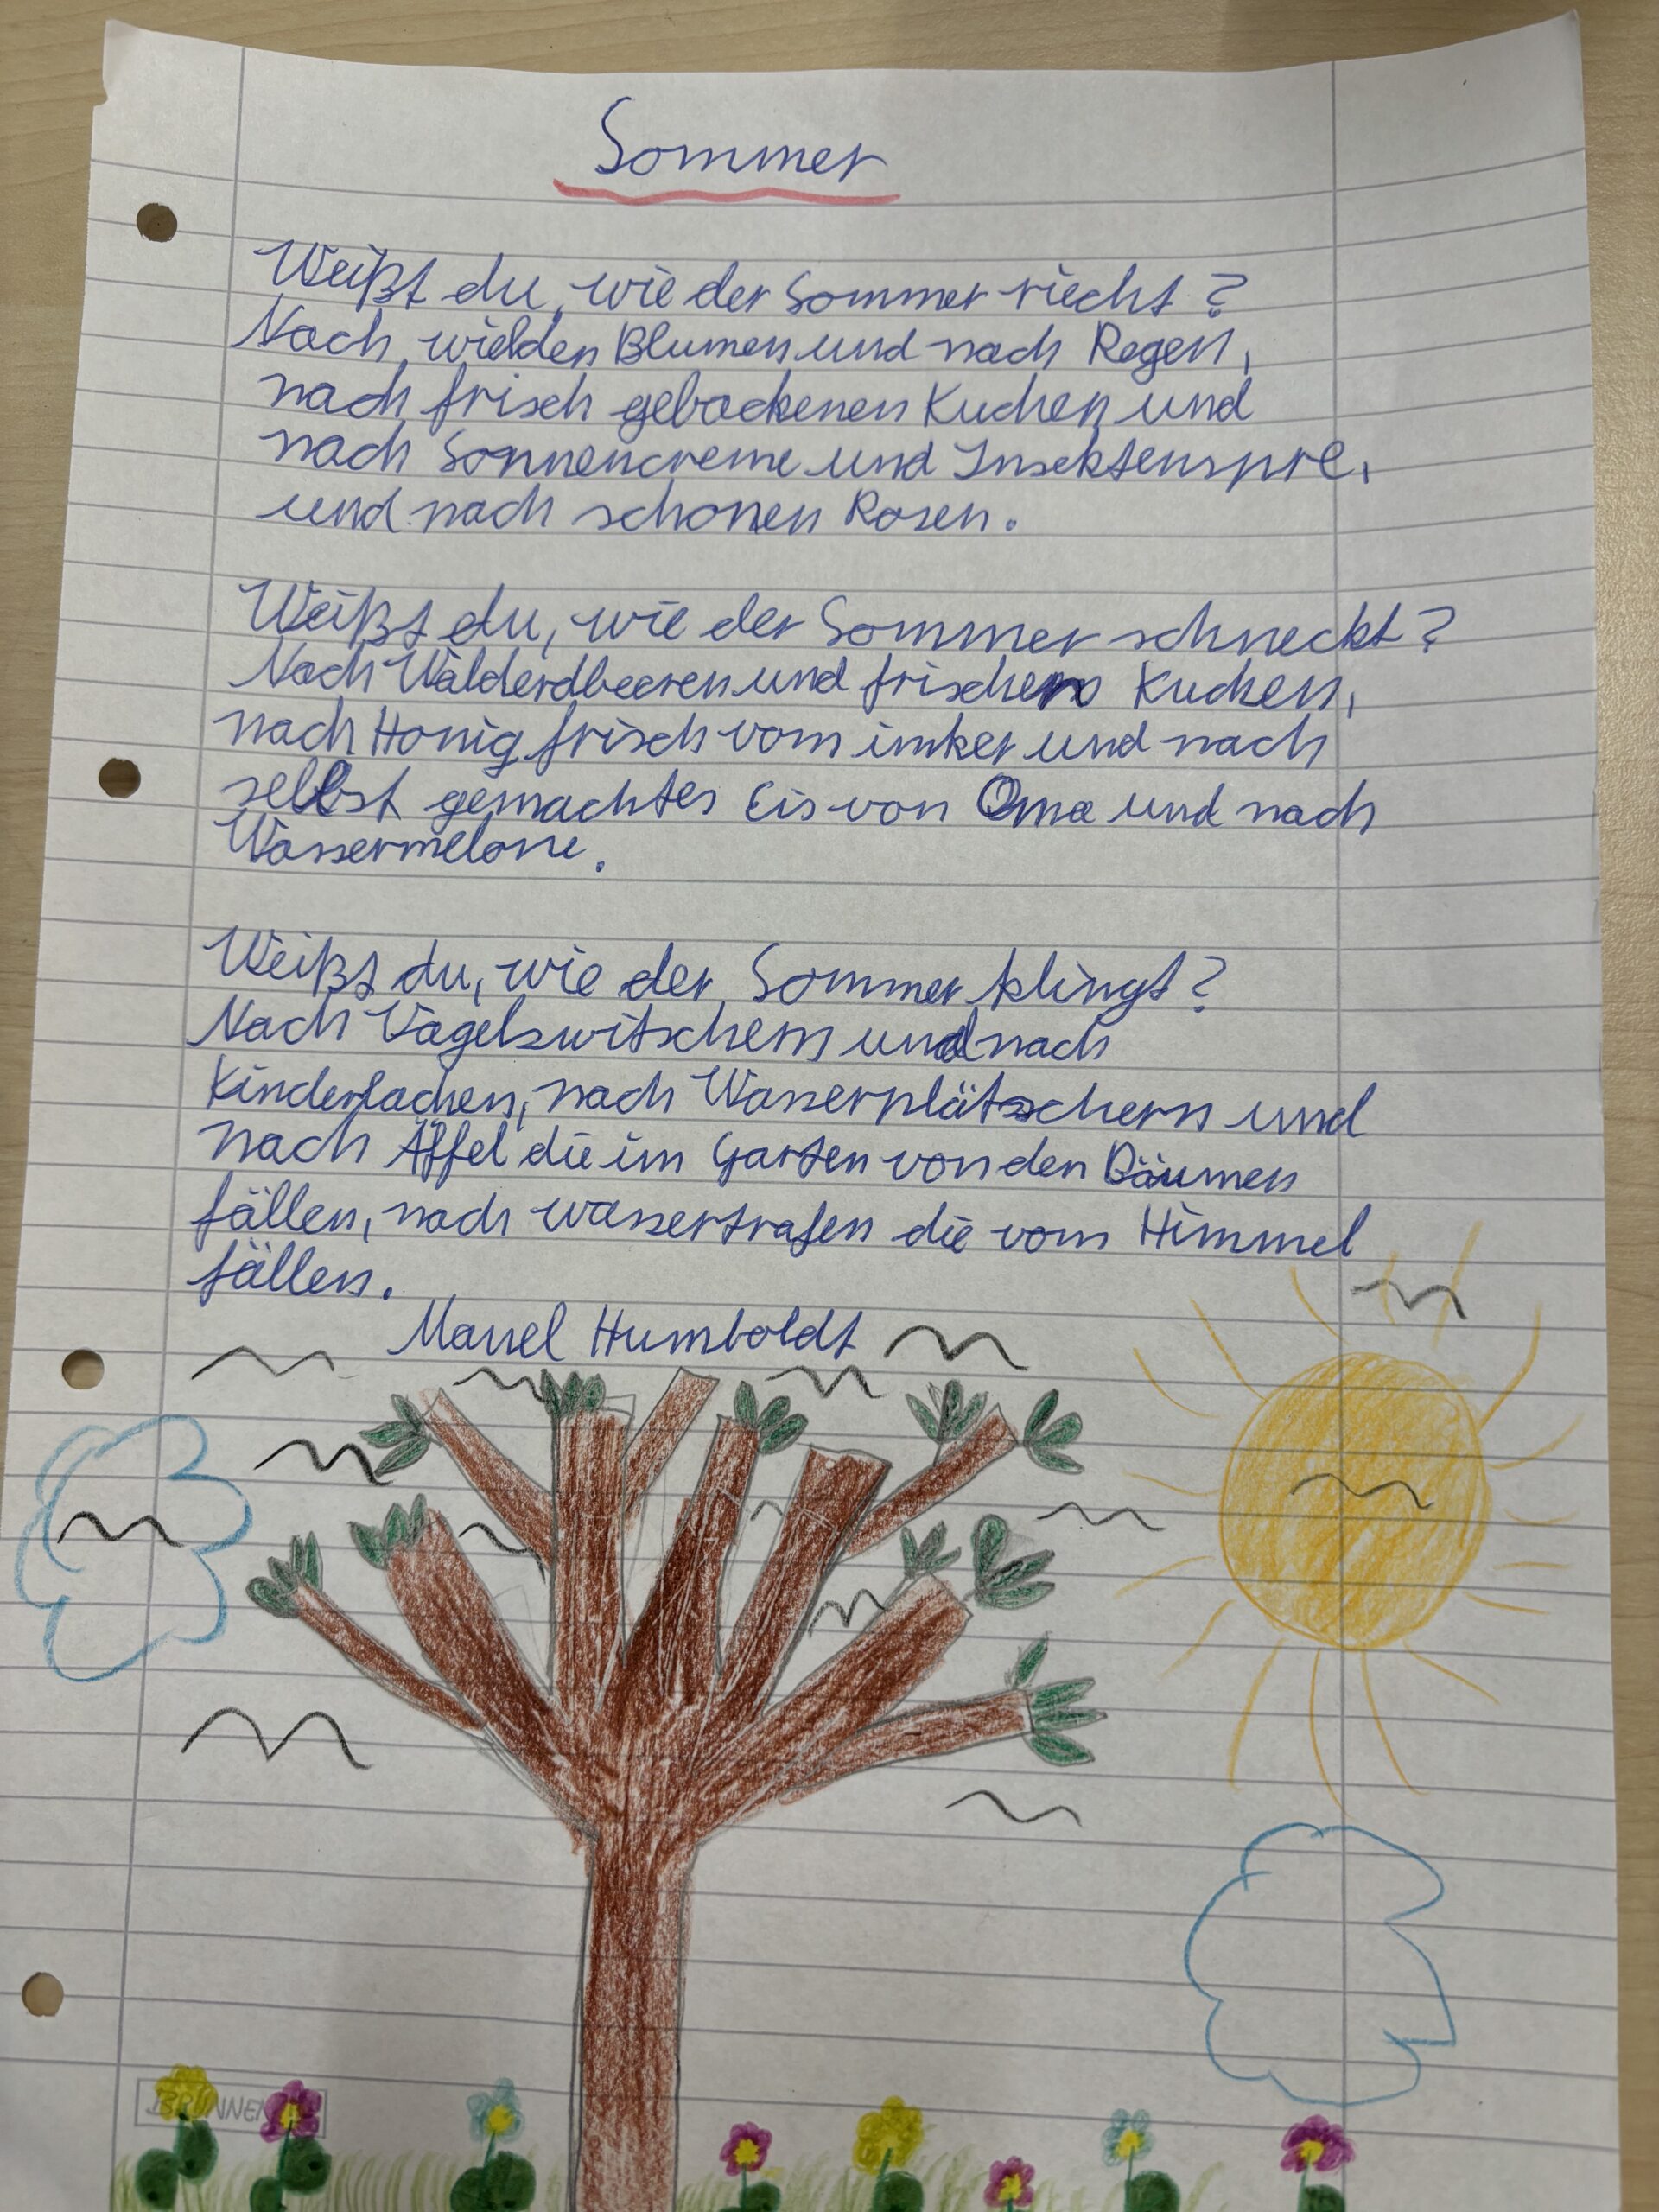 Sommer
Weißt du, wie der Sommer riecht?
Nach wielden Blumen und nach Regen,
nach frisch gebackenen Kuchen und
nach Sonnencreme und Insektenspre,
und nach schonen Rosen.
Weißt du, wie der Sommer schneckt?
Nach Walderdbeeren und frischen Kuchen,
nach Honig frisch vom imker und nach
selbst gemachtes Eis von Oma und nach
Wassermelone.
Weißt du, wie der Sommer klingt?
Nach Vagelswitschern und nach
Kinderlachen, nach Wasserplätschern und
nach Äffel die im Garten von den Bäumen
fällen, nach wassertrafen die vom Himmel
fällen.
Humboldt
BRUNNEN